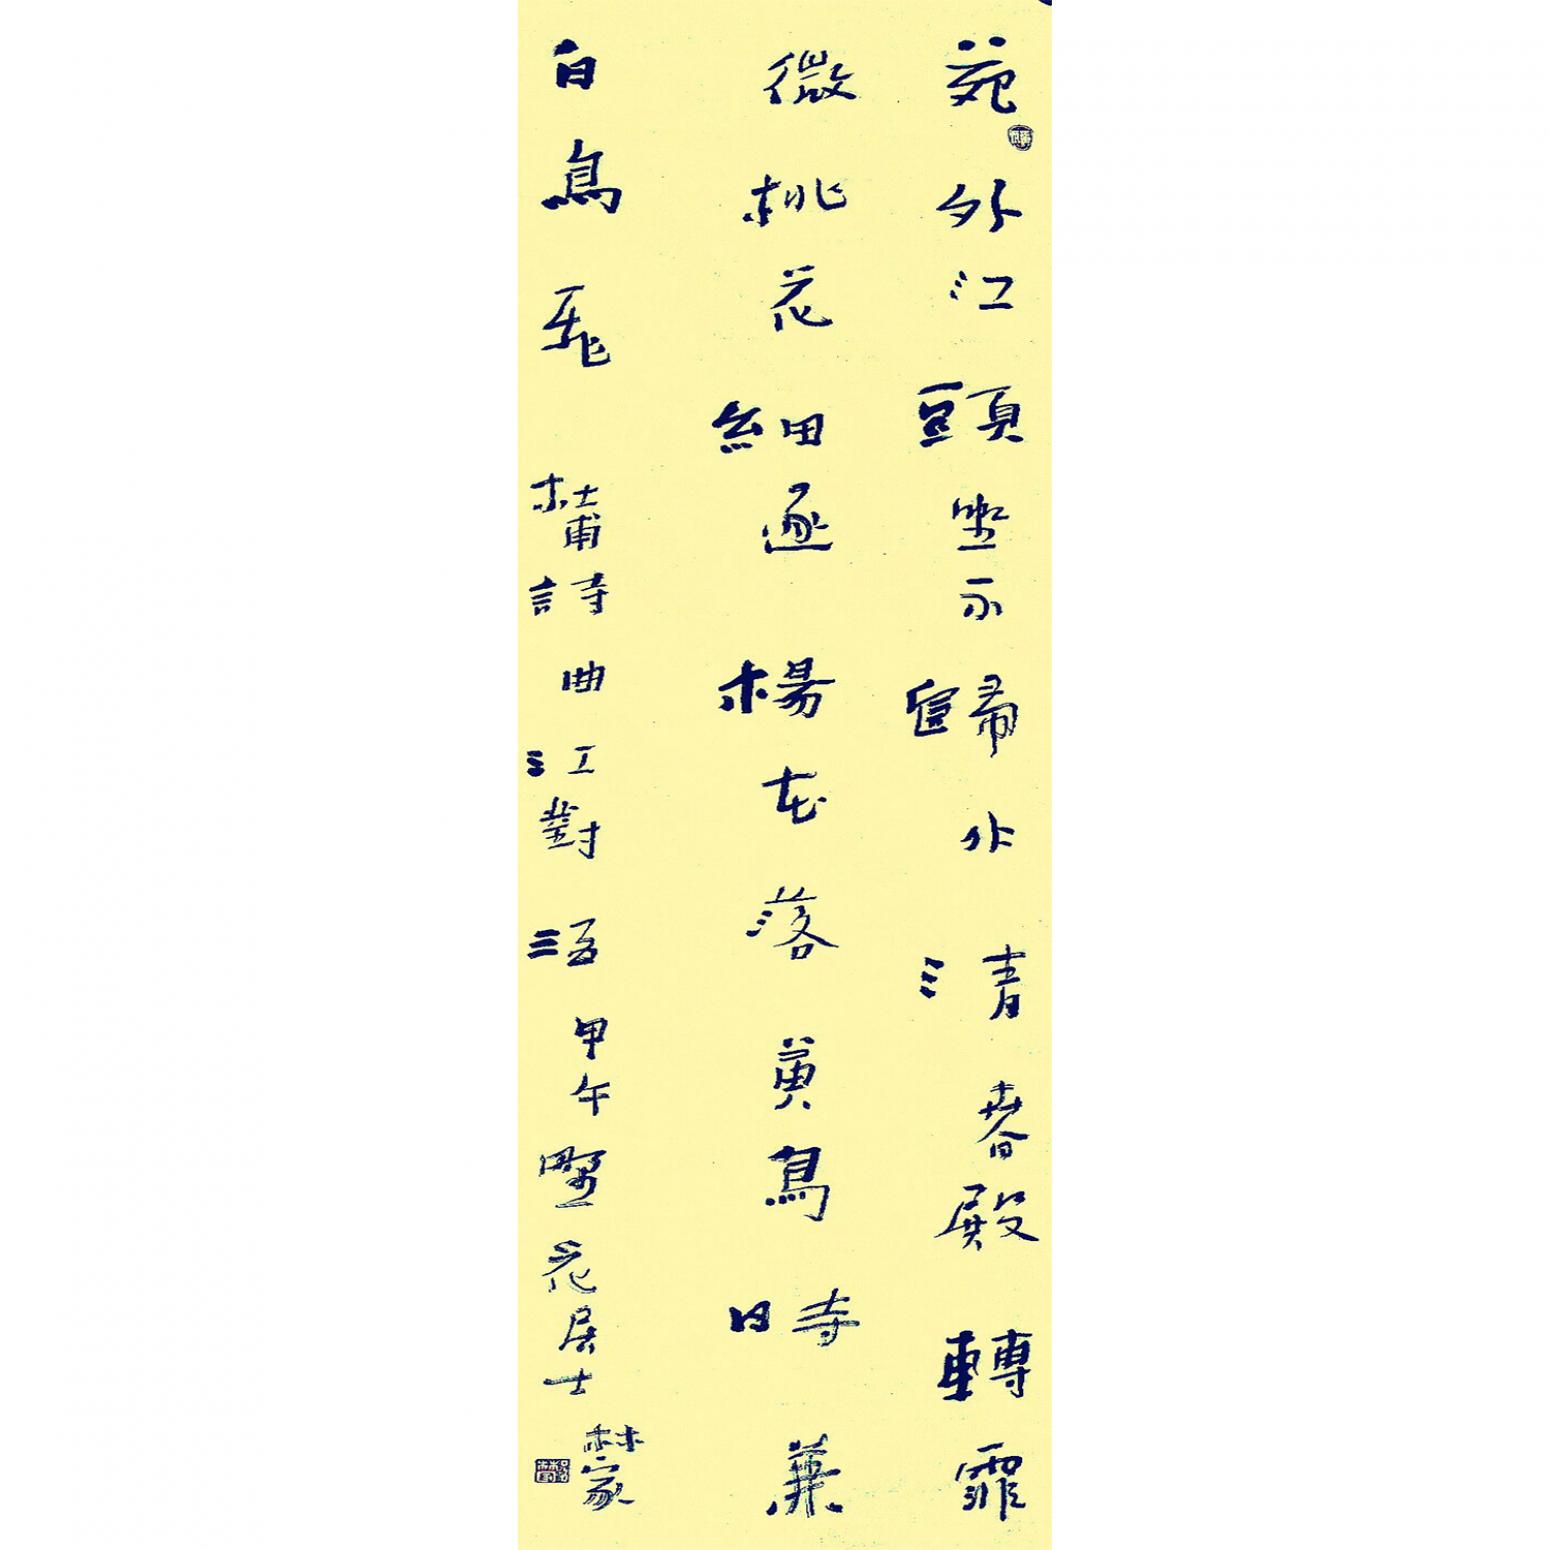 苑外江頭坐不歸水清春殿轉霏
微桃花細逐楊花落黃鳥時兼
白鳥飛 杜甫詩曲江對酒甲午花居士